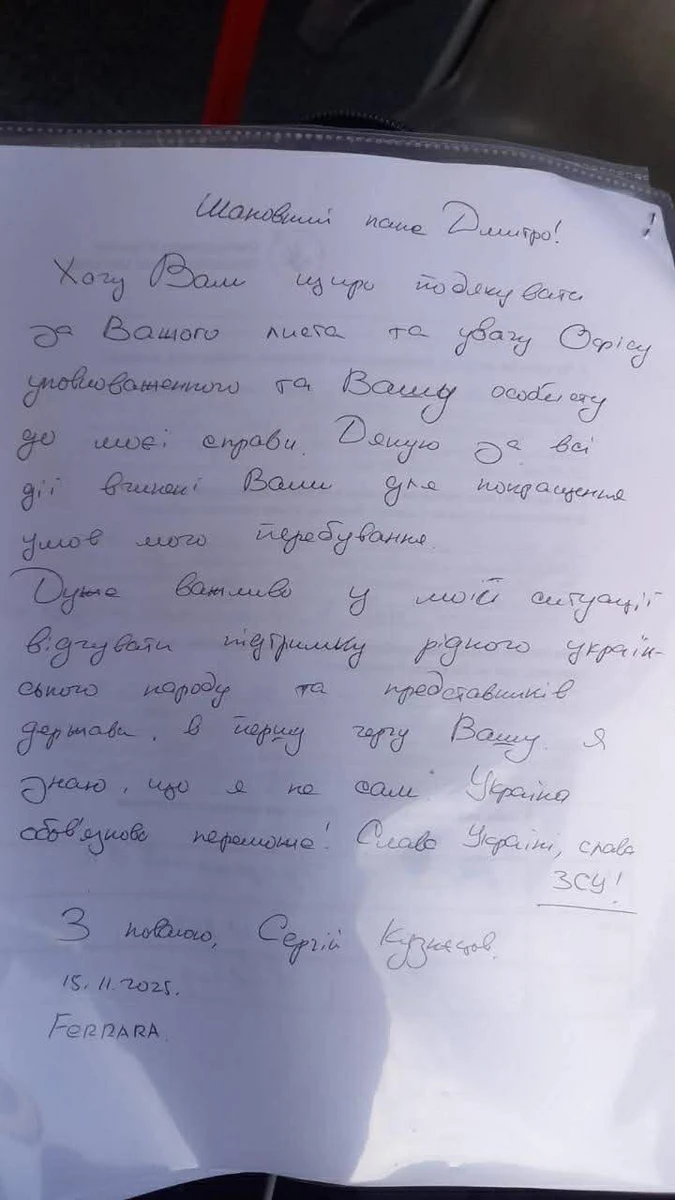 Шановний пане Дмитро!
Хочу Вам щиро подякувати
за Вашого листа та увагу Офісу
уповноваженного та Вашу особисту
до моєї справи. Дякую за всі
дії вчинені Вами для покращення
умов мого перебування.
Дуже важливо у моїй ситуації
відчувати підтримку рідного україн-
ського народу та представників
держави, в першу чергу Вашу. Я
знаю, що я не сам. Україна
обов'язково переможе! Слава Україні, слава
ЗСУ!
З повагою, Сергій Кузнєцов.
15.11.2025.
FERRARA.